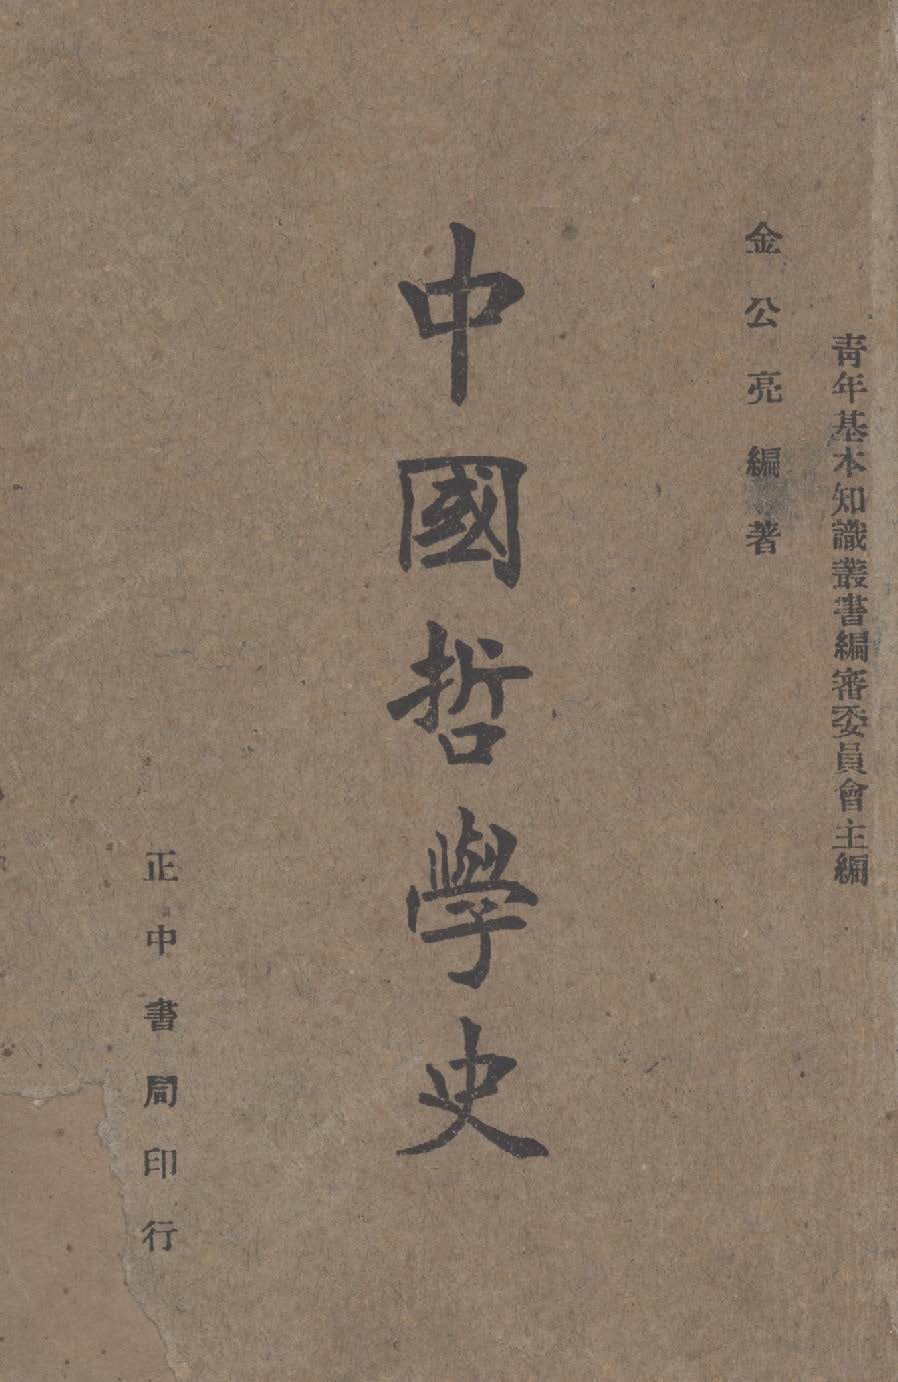 青年基本知識叢書編審委員會主編
金公亮編著
中國哲學史
正中書局印行